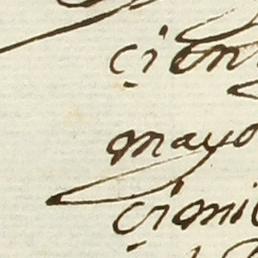 cion
mayo
cioni